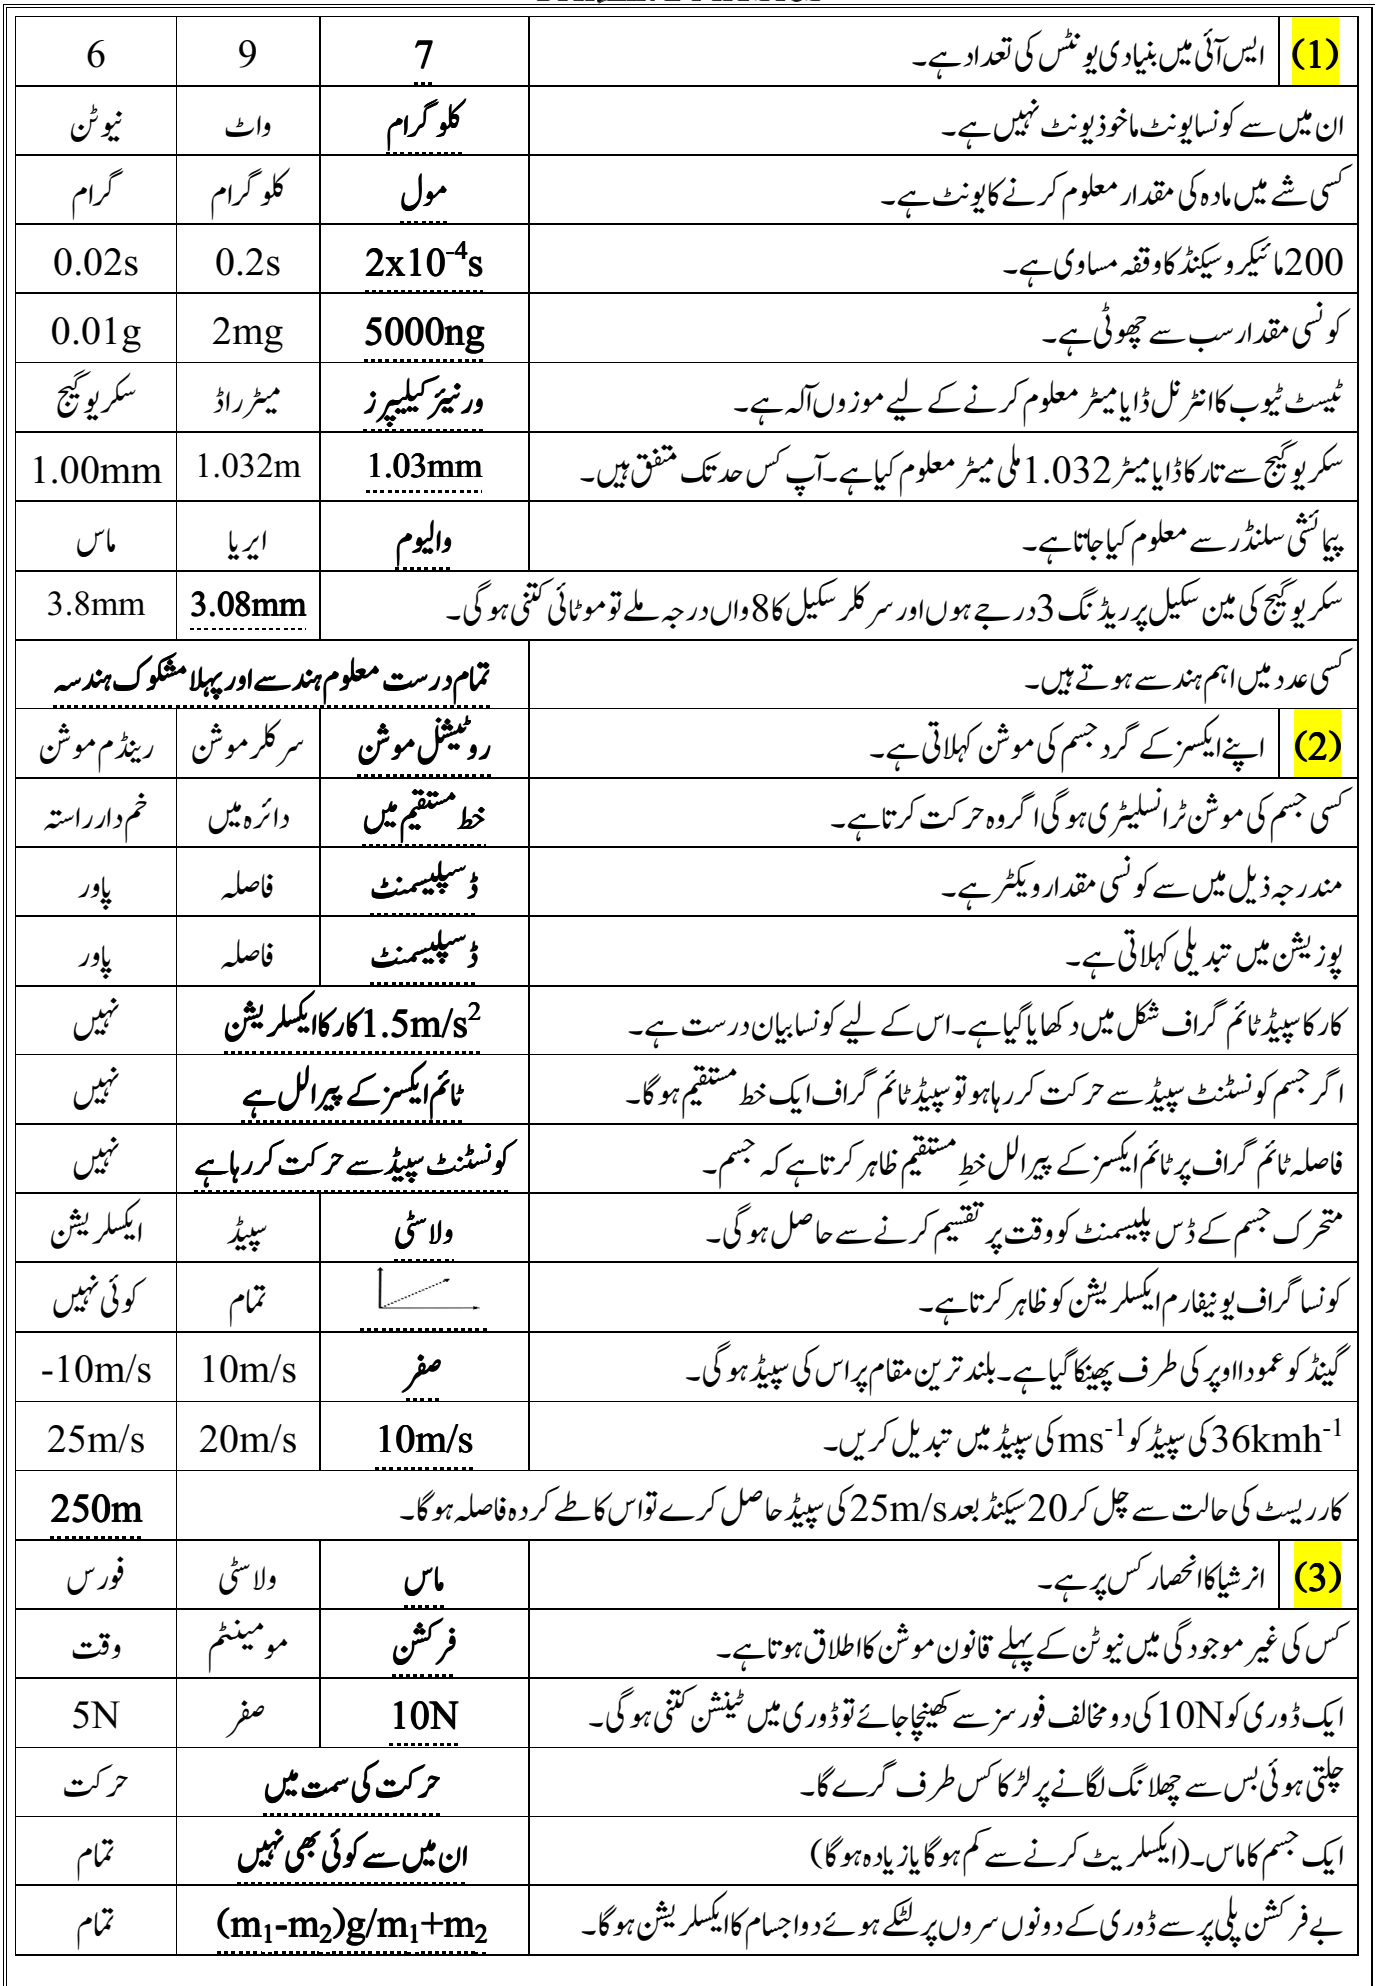 (1) ایس آئی میں بنیادی یونٹس کی تعداد ہے۔ 7 9 6
ان میں سے کونسا یونٹ ماخوذ یونٹ نہیں ہے۔ کلو گرام واٹ نیوٹن
کسی شے میں مادہ کی مقدار معلوم کرنے کا یونٹ ہے۔ مول کلو گرام گرام
200 مائیکرو سیکنڈ کا وقفہ مساوی ہے۔ 2x10⁻⁴s 0.2s 0.02s
کونسی مقدار سب سے چھوٹی ہے۔ 5000ng 2mg 0.01g
ٹیسٹ ٹیوب کا انٹرنل ڈایا میٹر معلوم کرنے کے لیے موزوں آلہ ہے۔ ورنیئر کیلیپرز میٹر راڈ سکریو گیج
سکریو گیج سے تار کا ڈایا میٹر 1.032 ملی میٹر معلوم کیا ہے۔ آپ کس حد تک متفق ہیں۔ 1.03mm 1.032m 1.00mm
پیمائشی سلنڈر سے معلوم کیا جاتا ہے۔ والیوم ایریا ماس
سکریو گیج کی مین سکیل پر ریڈنگ 3 درجے ہوں اور سرکلر سکیل کا 8 واں درجہ ملے تو موٹائی کتنی ہو گی۔ 3.08mm 3.8mm
کسی عدد میں اہم ہندسے ہوتے ہیں۔ تمام درست معلوم ہندسے اور پہلا مشکوک ہندسہ
(2) اپنے ایکسز کے گرد جسم کی موشن کہلاتی ہے۔ روٹیشنل موشن سرکلر موشن رینڈم موشن
کسی جسم کی موشن ٹرانسلیٹری ہو گی اگر وہ حرکت کرتا ہے۔ خط مستقیم میں دائرہ میں خم دار راستہ
مندرجہ ذیل میں سے کونسی مقدار ویکٹر ہے۔ ڈسپلیسمنٹ فاصلہ پاور
پوزیشن میں تبدیلی کہلاتی ہے۔ ڈسپلیسمنٹ فاصلہ پاور
کار کا سپیڈ ٹائم گراف شکل میں دکھایا گیا ہے۔ اس کے لیے کونسا بیان درست ہے۔ 1.5m/s² کار کا ایکسلریشن نہیں
اگر جسم کونسٹنٹ سپیڈ سے حرکت کر رہا ہو تو سپیڈ ٹائم گراف ایک خط مستقیم ہو گا۔ ٹائم ایکسز کے پیرالل ہے نہیں
فاصلہ ٹائم گراف پر ٹائم ایکسز کے پیرالل خطِ مستقیم ظاہر کرتا ہے کہ جسم۔ کونسٹنٹ سپیڈ سے حرکت کر رہا ہے نہیں
متحرک جسم کے ڈس پلیسمنٹ کو وقت پر تقسیم کرنے سے حاصل ہو گی۔ ولاسٹی سپیڈ ایکسلریشن
کونسا گراف یونیفارم ایکسلریشن کو ظاہر کرتا ہے۔ تمام کوئی نہیں
گینڈ کو عمودا اوپر کی طرف پھینکا گیا ہے۔ بلند ترین مقام پر اس کی سپیڈ ہو گی۔ صفر 10m/s -10m/s
36kmh⁻¹ کی سپیڈ کو ms⁻¹ کی سپیڈ میں تبدیل کریں۔ 10m/s 20m/s 25m/s
کار ریسٹ کی حالت سے چل کر 20 سیکنڈ بعد 25m/s کی سپیڈ حاصل کرے تو اس کا طے کردہ فاصلہ ہو گا۔ 250m
(3) انرشیا کا انحصار کس پر ہے۔ ماس ولاسٹی فورس
کس کی غیر موجودگی میں نیوٹن کے پہلے قانون موشن کا اطلاق ہوتا ہے۔ فرکشن مومینٹم وقت
ایک ڈوری کو 10N کی دو مخالف فورسز سے کھینچا جائے تو ڈوری میں ٹینشن کتنی ہو گی۔ 10N صفر 5N
چلتی ہوئی بس سے چھلانگ لگانے پر لڑکا کس طرف گرے گا۔ حرکت کی سمت میں حرکت
ایک جسم کا ماس۔ (ایکسلریٹ کرنے سے کم ہو گا یا زیادہ ہو گا) ان میں سے کوئی بھی نہیں تمام
بے فرکشن پلی پر سے ڈوری کے دونوں سروں پر لٹکے ہوئے دو اجسام کا ایکسلریشن ہو گا۔ (m₁-m₂)g/m₁+m₂ تمام